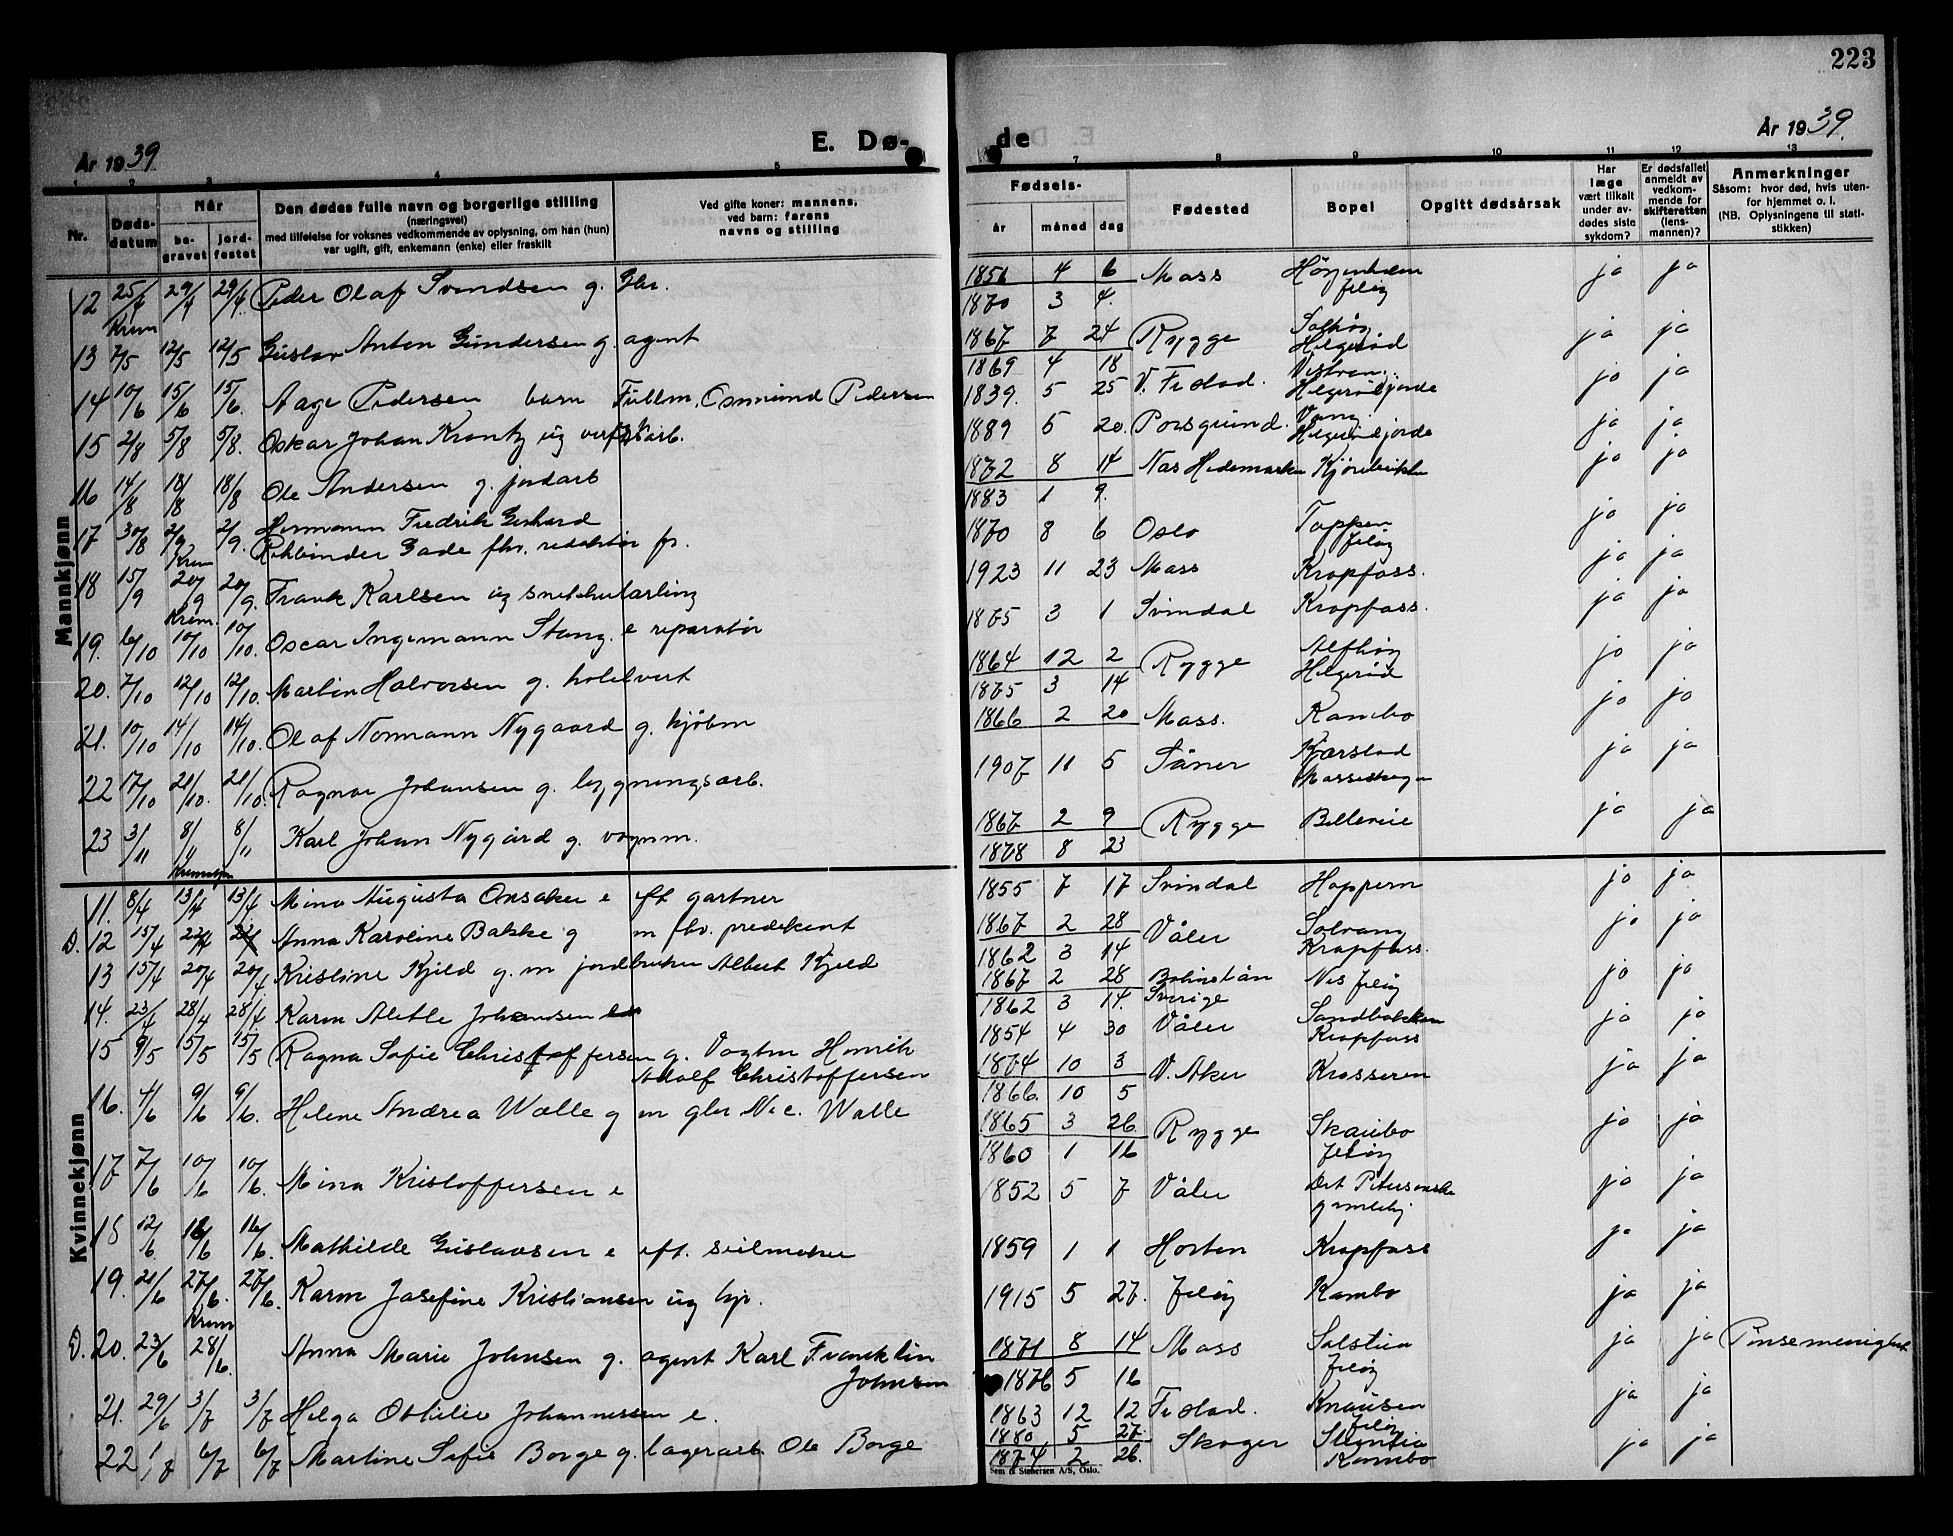 223
År 1939.
E. Dø-
de
År 1939.
1 2 3 4 5
7 8 9 10 11 12 13
Nr.
Døds-
datum
Når
be-
gravet
jord-
festet
Den dødes fulle navn og borgerlige stilling
(næringsvei)
med tilføielse for voksnes vedkommende av oplysning, om han (hun)
var ugift, gift, enkemann (enke) eller fraskilt
Ved gifte koner: mannens,
ved barn: farens
navns og stilling
Fødsels-
år måned dag
Fødested
Bopel
Opgitt dødsårsak
Har
læge
vært tilkalt
under av-
dødes siste
sykdom?
Er dødsfallet
anmeldt av
vedkom-
mende for
skifteretten
(lens-
mannen)?
Anmerkninger
Såsom: hvor død, hvis uten-
for hjemmet o. l.
(NB. Oplysningene til stati-
stikken)
Mannkjønn
12 25/4 29/4 29/4. Peder Olaf Svendsen g. Gbr. 1856 4 6 Moss Jeløy ja ja
1870 3 4.
Krem
13 7/5 12/5 12/5 Gustav Anton Gundersen g agent 1867 7 24 Rygge Solhøy Helgerød ja ja
1869 4 18
14 10/6 15/6 15/6. Aage Pedersen barn Fullm. Osmund Pedersen 1839. 5 25 V. Frstad. Helgerødjorde ja ja
15 2/8 5/8 5/8. Oskar Johan Krantz ug verkst.arb. 1889 5 20. Porsgrund. Vang. Helgerødjorde ja ja
16 14/8 18/8 18/8 Ole Andersen g. jordarb 1872 8 14 Nes Hedemarken ja ja
1883 1 9.
17 30/8 2/9 2/9. Hermann Fredrik Gerhard
Rehbinder Gade fhv. redaktør fr. 1870 8 6 Oslo Toppen Jeløy ja ja
Krem
18 15/9 20/9 20/9. Frank Karlsen ug snekkerlærling 1923 11 23 Moss Krapfoss. ja ja
Krem.
19. 6/10 10/10 10/10. Oscar Ingemann Stang. e reparatør 1875 3 1 Svindal Krapfoss. ja ja
20. 7/10 12/10 12/10. Martin Halvorsen g. hotelvert 1864 12 2 Rygge Alfhøy Helgerød ja ja
1875 3 14
21. 10/10 14/10 14/10. Olaf Normann Nygaard g. kjøbm 1866 2 20 Moss. Kambo ja ja
22 17/10 21/10. 21/10. Ragnar Johansen g. bygningsarb. 1907 11 5 Såner Kjærstad Mosseskogen ja ja
23 3/11 8/11 8/11 Karl Johan Nygård g. vognm. 1867 2 9 Rygge Bellevue ja ja
1878 8 23
Kvinnekjønn
11. 8/4 13/4 13/4 Mina Augusta Onsaker e eft gartner 1855 7 17 Svindal Hoppern ja ja
D. 12 15/4 22/4 22/4 Anna Karoline Bakke g m fhv. predikant 1867 2 28 Våler Solvang Krapfoss. ja ja
1862 3 14
13 15/4 20/4 20/4 Kristine Kjeld g. m jordbruker Albert Kjeld 1867 2 28 Bohuslän Sverige Nes Jeløy ja ja
1862 3 14.
14. 23/4 28/4 28/4 Karen Alette Johansen 1854 4 30 Våler Sandbakken Krapfoss ja ja
15 9/5 15/5 15/5 Ragna Sofie Christoffersen g. Vogtm Henrik
Adolf Christoffersen 1864 10 3 V. Aker Krosseren ja ja
1866. 10 5
16. 4/6 9/6 9/6. Helene Andrea Walle g m gbr N. c. Walle 1865 3 26. Rygge Skaubo Jeløy ja ja
1860 1 16
17 7/6 10/6 10/6. Mina Kristoffersen e 1852 5 7 Våler Det Petersonske gamlehj ja ja
18 12/6. 16/6 16/6. Mathilde Gustavsen e eft. seilmaker 1859 1 1 Horten Krapfoss ja ja
19. 21/6 27/6. 27/6. Karen Josefine Kristiansen ug hp. 1915 5 27. Jeløy Kambo ja ja
Krem
D. 20. 23/6 28/6. Anna Marie Johnsen g. agent Karl Franklin
Johnsen 1871 8 14 Moss Solstua Jeløy ja ja Pinsemenighet
1876 5 16
21. 29/6 3/7 3/7 Helga Othilie Johannessen e. 1863 12 12 Frstad. Knausen Jeløy ja ja
22 1/7 6/7 6/7 Martine Sofie Borge g. lagerarb Ole Borge 1880 5 27. Skoger Kambo ja ja
1874 2 26.
Sem & Stenersen A/S, Oslo.